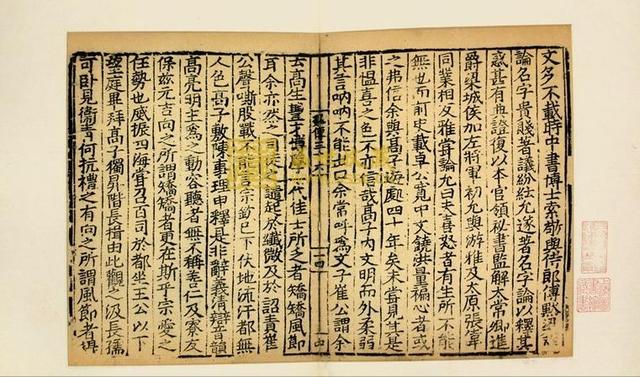 文多不載時中書博士索敞與侍郎傅默
論名字貴賤著議紛紜允遂著名字論以釋其
惑甚有典證復以本官領秘書監解太常卿進
爵梁城侯加左將軍初允與游雅及太原張偉
同業相友雅嘗論允曰夫喜怒者有生所不能
無也而前史載卓公寬中文饒洪量褊心者或
之弗信余與高子遊處四十年矣未嘗見其是
非慍喜之色不亦信哉高子內文明而外柔弱
其言吶吶不能出口余常呼為文子崔公謂余
云高生豐才博學一代佳士所乏者矯矯風節
耳余亦然之司徒之譴起於纖微及於詔責崔
公聲嘶股戰不能言宗欽已下伏地流汗都無
人色高子敷陳事理申釋是非辭義清辯音韻
高亮明主為之動容聽者無不稱善仁及寮友
保茲元吉向之所謂矯矯者更在斯乎宗愛之
任勢也威振四海嘗召百司於都坐王公以下
望庭畢拜高子獨昇階長揖由此觀之汲長孺
可臥見衛青何抗禮之有向之所謂風節者得